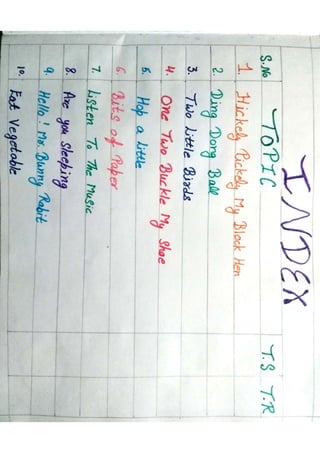 INDEX
S.No TOPIC T.S T.R
1. Hickely Pickely My Black Hen
2. Ding Dong Ball
3. Two Little Birds
4. One Two Buckle My Shoe
5. Hop a little
6. Bits of Paper
7. Listen To The Music
8. Are you Sleeping
9. Hello! Mr. Bunny Rabit
10. Eat Vegetable